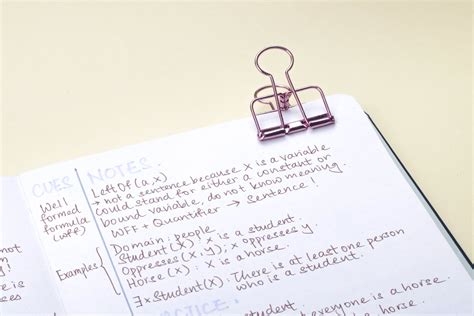 CUES NOTES
Well formed formula (wff)
LeftOf(a,x)
→ not a sentence because x is a variable
could stand for either a constant or
bound variable, do not know meaning.
WFF + Quantifier → Sentence!
Examples
Domain: people
Student(X): X is a student.
Oppresses(x,y); x oppresses y
Horse(x): x is a horse.
∃x Student(X). There is at least one person
who is a student.
everyone is a horse.
is a horse
not